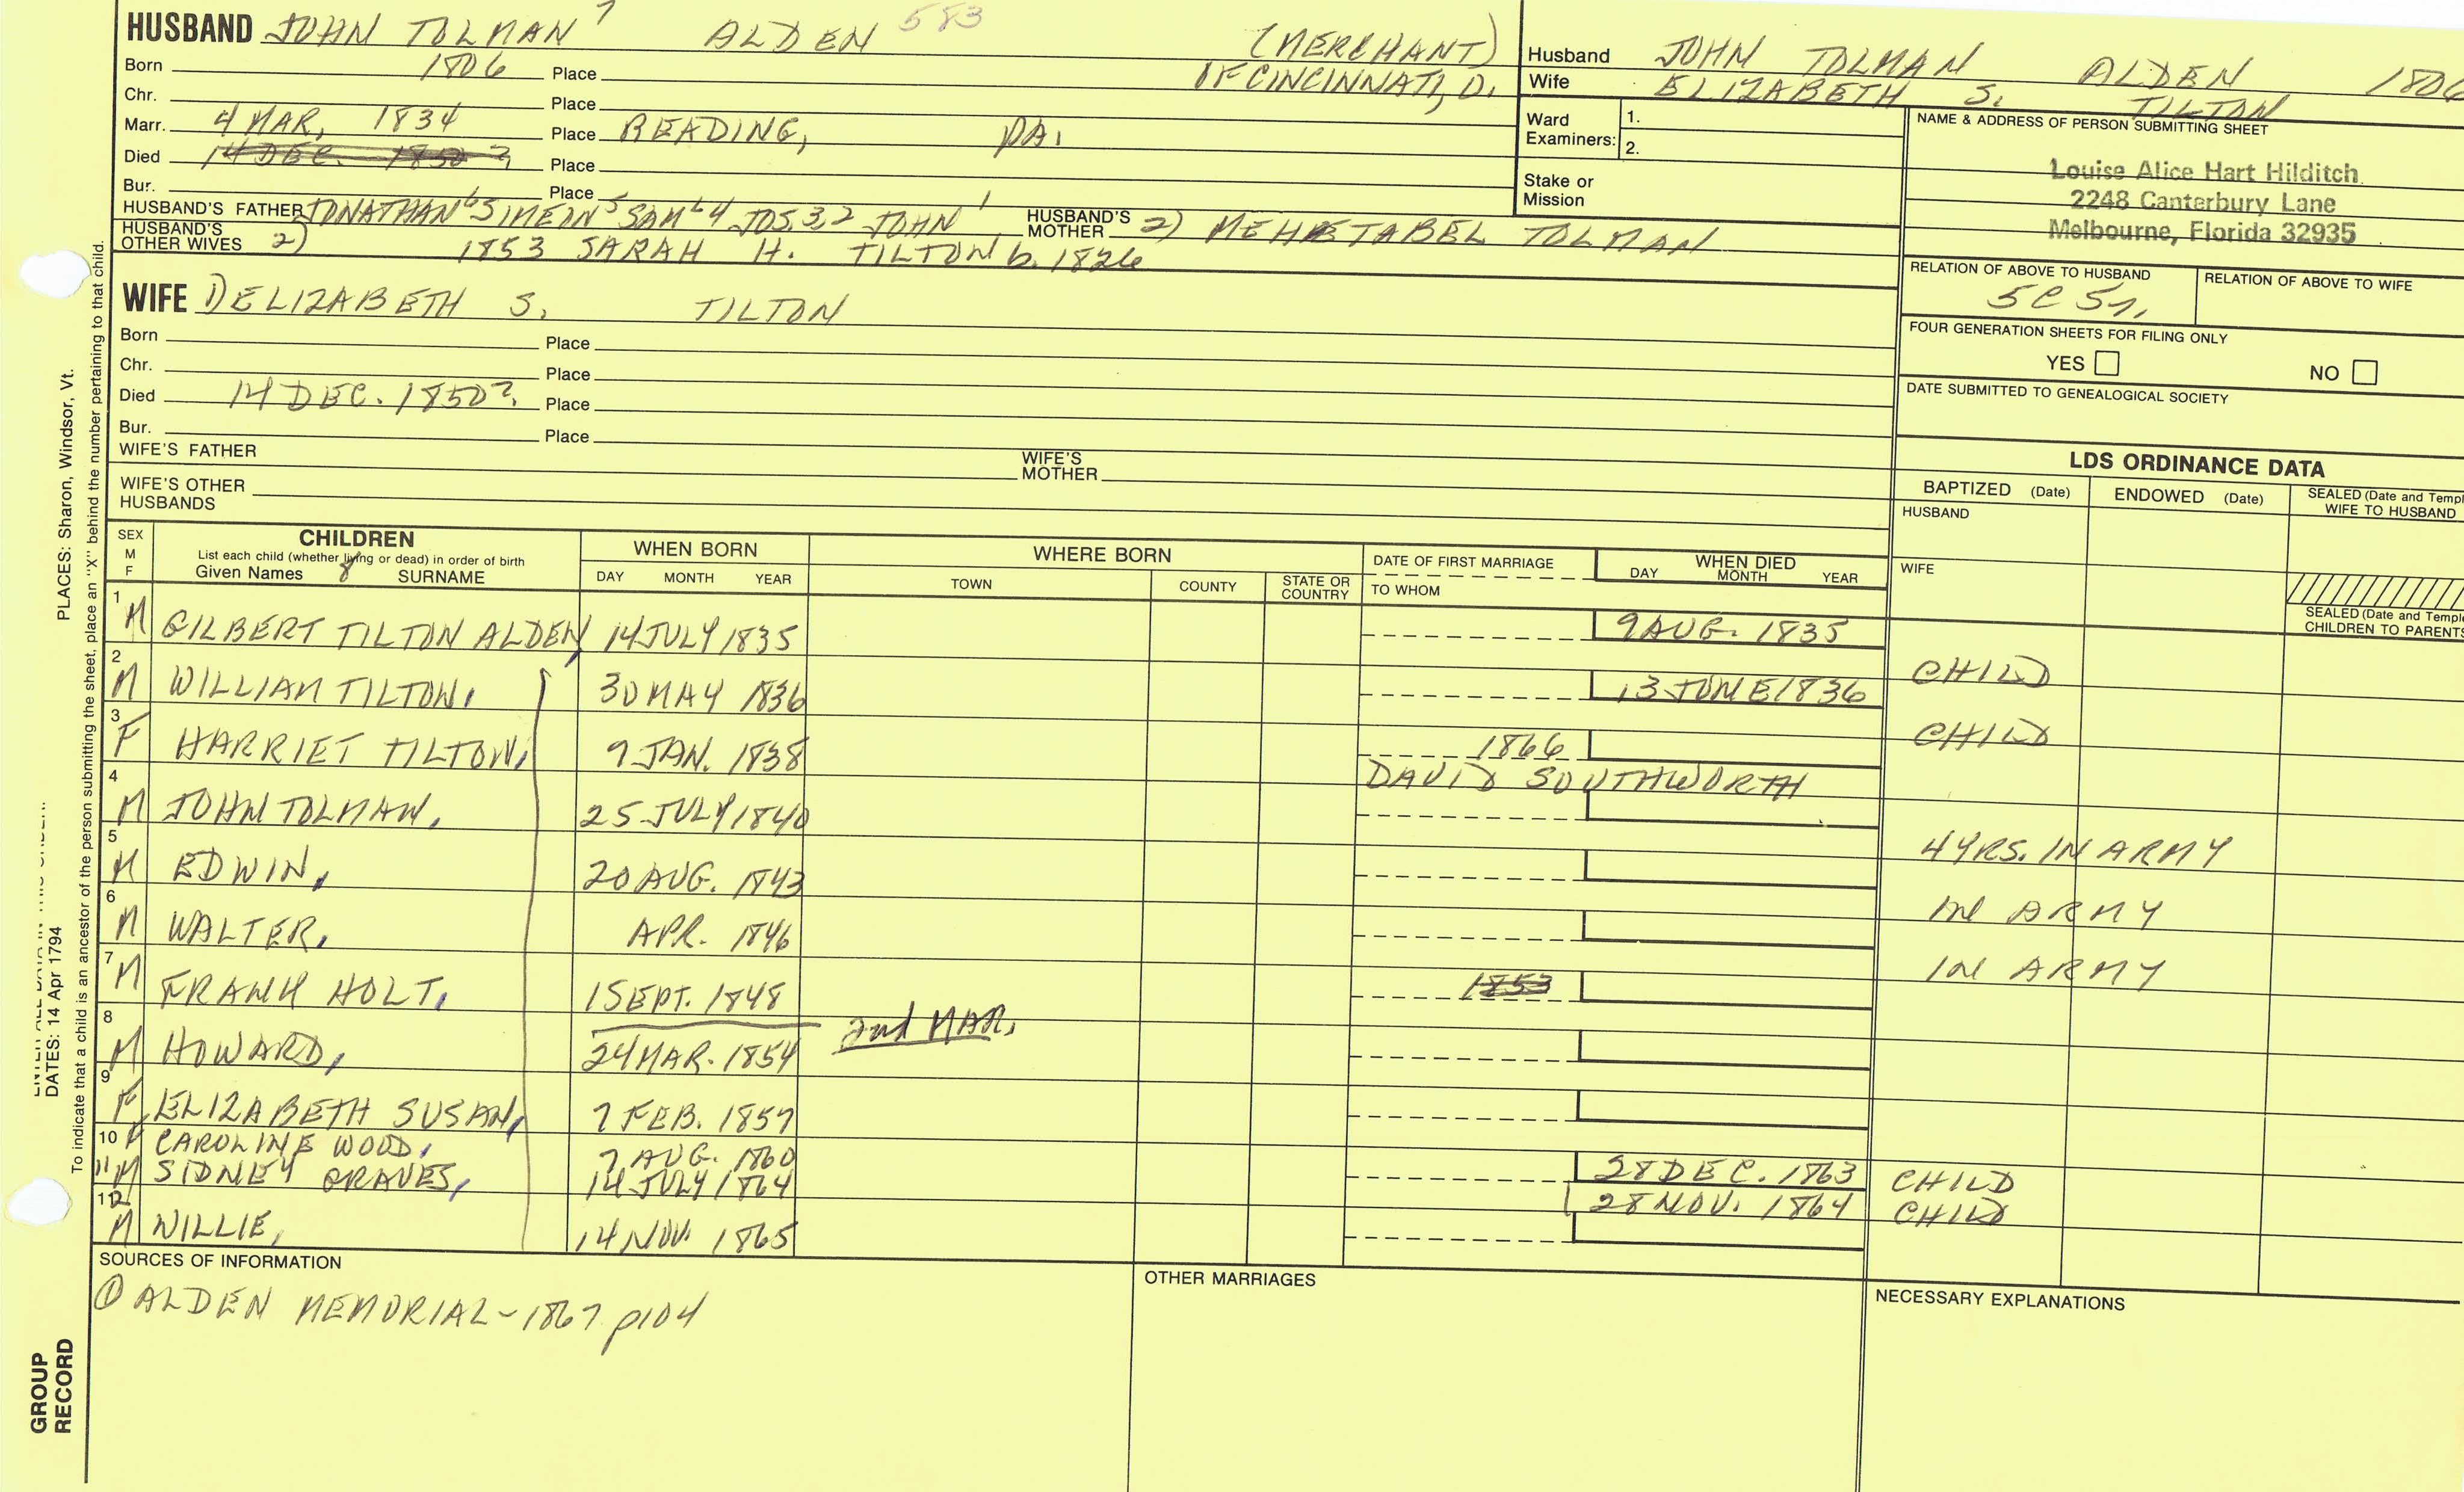 HUSBAND JOHN TOLMAN 7 ALDEN 583 (MERCHANT)
Born 1806 Place OF CINCINNATI, O.
Chr. Place
Marr. 4 MAR, 1834 Place READING, PA.
Died 14 DEC. 1850? Place
Bur. Place
HUSBAND'S FATHER JONATHAN 6 SIMEON 5 SAML 4 JOS. 3,2 JOHN 1 HUSBAND'S MOTHER 2) MEHETABEL TOLMAN
HUSBAND'S OTHER WIVES 2) 1853 SARAH H. TILTON b. 1826
WIFE 1) ELIZABETH S. TILTON
Born Place
Chr. Place
Died 14 DEC. 1850? Place
Bur. Place
WIFE'S FATHER WIFE'S MOTHER
WIFE'S OTHER HUSBANDS
Husband JOHN TOLMAN ALDEN 1806
Wife ELIZABETH S. TILTON
Ward Examiners: 1. 2.
Stake or Mission
NAME & ADDRESS OF PERSON SUBMITTING SHEET
Louise Alice Hart Hilditch
2248 Canterbury Lane
Melbourne, Florida 32935
RELATION OF ABOVE TO HUSBAND RELATION OF ABOVE TO WIFE
5C 5r,
FOUR GENERATION SHEETS FOR FILING ONLY
YES NO
DATE SUBMITTED TO GENEALOGICAL SOCIETY
LDS ORDINANCE DATA
BAPTIZED (Date) ENDOWED (Date) SEALED (Date and Templ
WIFE TO HUSBAND
HUSBAND
WIFE
SEALED (Date and Temple
CHILDREN TO PARENTS
SEX M F CHILDREN WHEN BORN WHERE BORN DATE OF FIRST MARRIAGE WHEN DIED
List each child (whether living or dead) in order of birth
Given Names 8 SURNAME DAY MONTH YEAR TOWN COUNTY STATE OR COUNTRY TO WHOM DAY MONTH YEAR
1 M GILBERT TILTON ALDEN, 14 JULY 1835 9 AUG. 1835 CHILD
2 M WILLIAM TILTON, 30 MAY 1836 13 JUNE 1836 CHILD
3 F HARRIET TILTON, 9 JAN. 1838 1866
DAVID SOUTHWORTH
4 M JOHN TOLMAN, 25 JULY 1840 4 YRS. IN ARMY
5 M EDWIN, 20 AUG. 1843 IN ARMY
6 M WALTER, APR. 1846 IN ARMY
7 M FRANK HOLT, 1 SEPT. 1848 1853
2nd MAR.
8 M HOWARD, 24 MAR. 1854
9 F ELIZABETH SUSAN, 7 FEB. 1857
10 F CAROLINE WOOD, 7 AUG. 1860 28 DEC. 1863 CHILD
11 M SIDNEY GRAVES, 14 JULY 1864 28 NOV. 1864 CHILD
12 M WILLIE, 14 NOV. 1865
SOURCES OF INFORMATION
① ALDEN MEMORIAL - 1867 p104
OTHER MARRIAGES
NECESSARY EXPLANATIONS
PLACES: Sharon, Windsor, Vt.
DATES: 14 Apr 1794
To indicate that a child is an ancestor of the person submitting the sheet, place an "X" behind the number pertaining to that child.
GROUP
RECORD